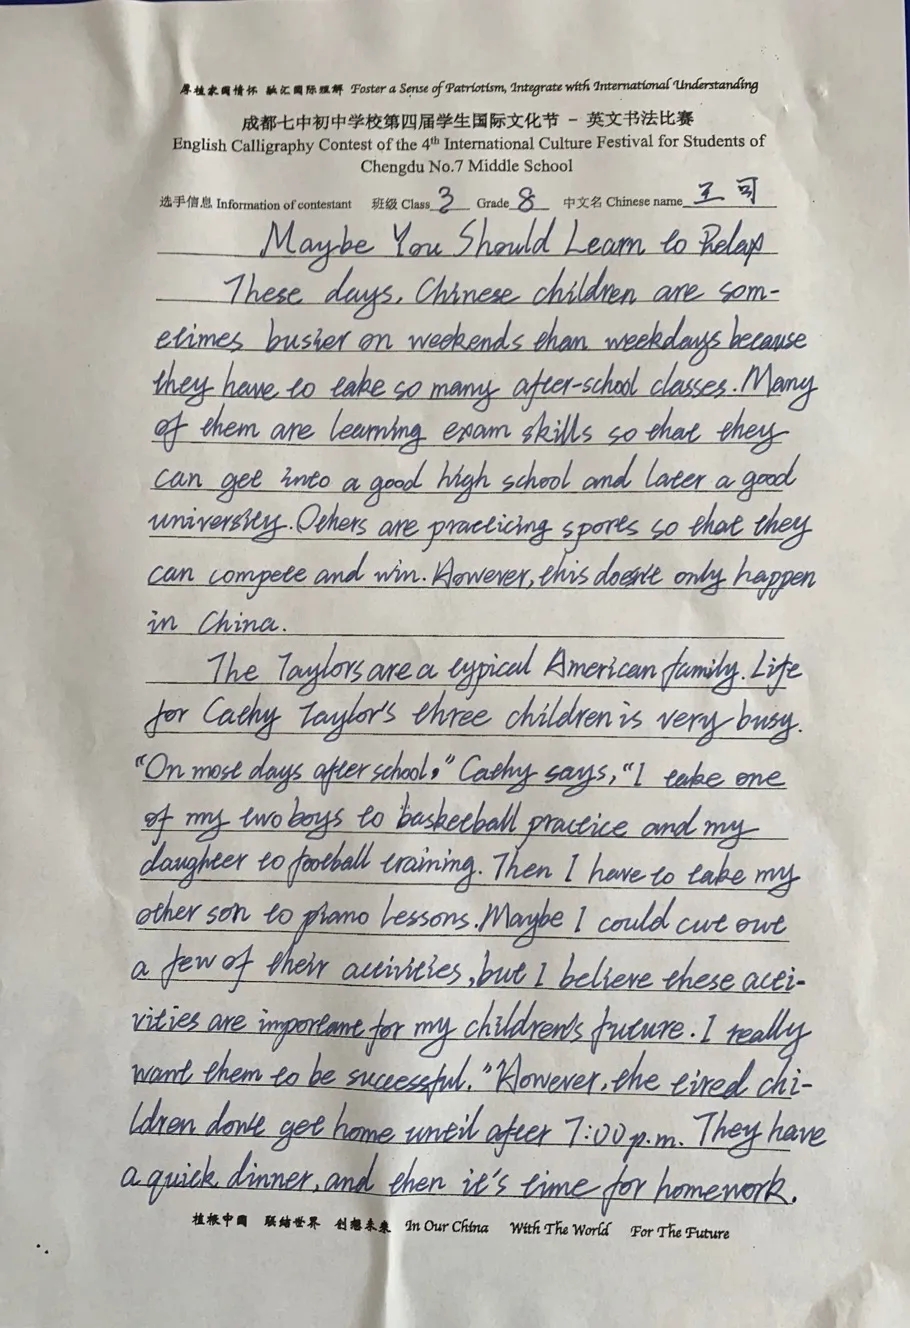 厚植家国情怀 融汇国际理解 Foster a Sense of Patriotism, Integrate with International Understanding
成都七中初中学校第四届学生国际文化节 - 英文书法比赛
English Calligraphy Contest of the 4th International Culture Festival for Students of
Chengdu No.7 Middle School
选手信息 Information of contestant 班级 Class 3 Grade 8 中文名 Chinese name 王可
Maybe You Should Learn to Relax
These days, Chinese children are som-
etimes busier on weekends than weekdays because
they have to take so many after-school classes. Many
of them are learning exam skills so that they
can get into a good high school and later a good
university. Others are practicing sports so that they
can compete and win. However, this doesn't only happen
in China.
The Taylors are a typical American family. Life
for Cathy Taylor's three children is very busy.
"On most days after school," Cathy says, "I take one
of my two boys to basketball practice and my
daughter to football training. Then I have to take my
other son to piano lessons. Maybe I could cut out
a few of their activities, but I believe these acti-
vities are important for my children's future. I really
want them to be successful." However, the tired chi-
ldren don't get home until after 7:00 p.m. They have
a quick dinner, and then it's time for homework.
植根中国 联结世界 创想未来 In Our China With The World For The Future